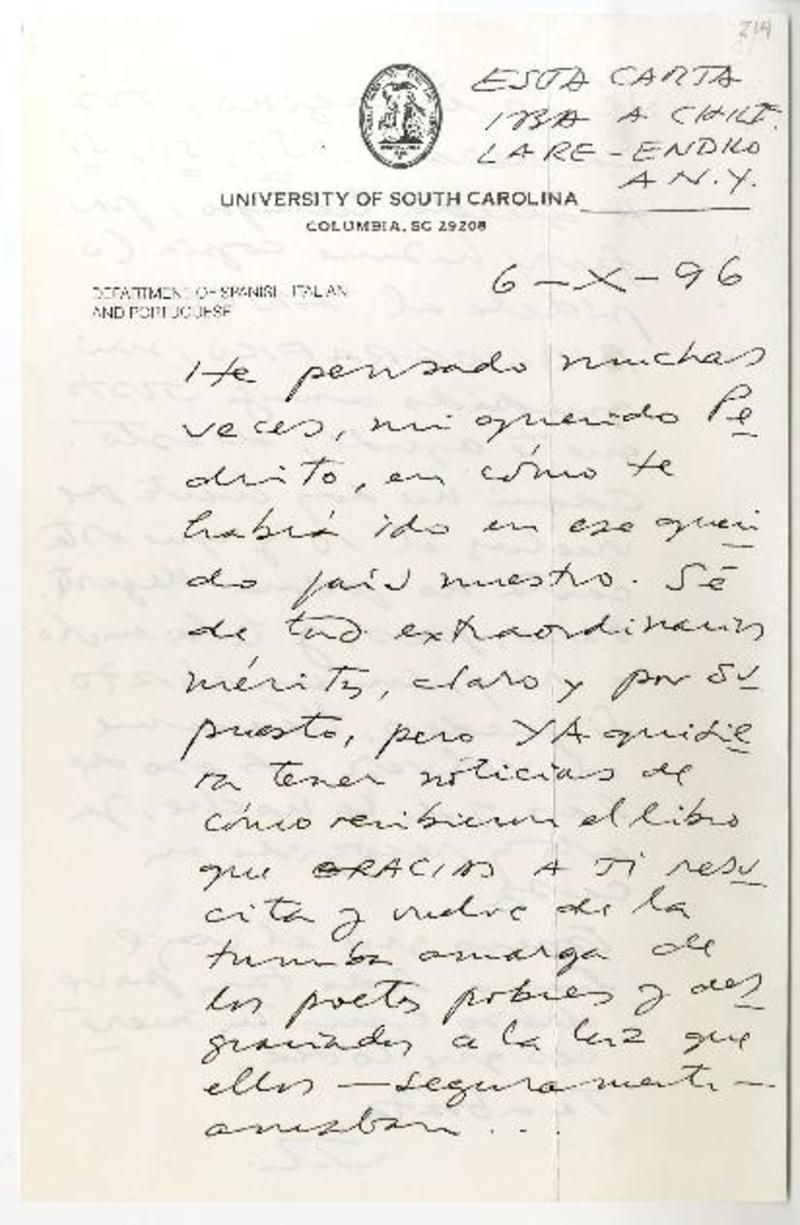 214
ESTA CARTA
IBA A CHILE.
LA RE-ENDILO
A N.Y.
UNIVERSITY OF SOUTH CAROLINA
COLUMBIA, SC 29208
6-X-96
DEPARTMENT OF SPANISH, ITALIAN
AND PORTUGUESE
He pensado muchas
veces, mi querido Pe
drito, en cómo te
habrá ido en ese queri
do país nuestro. Sé
de tus extraordinarios
méritos, claro y por su
puesto, pero YA quisie
ra tener noticias de
cómo recibieron el libro
que GRACIAS A TI resu
cita y vuelve de la
tumba amarga de
los poetas pobres y des
graciados a la luz que
ellos —seguramente—
amaban...